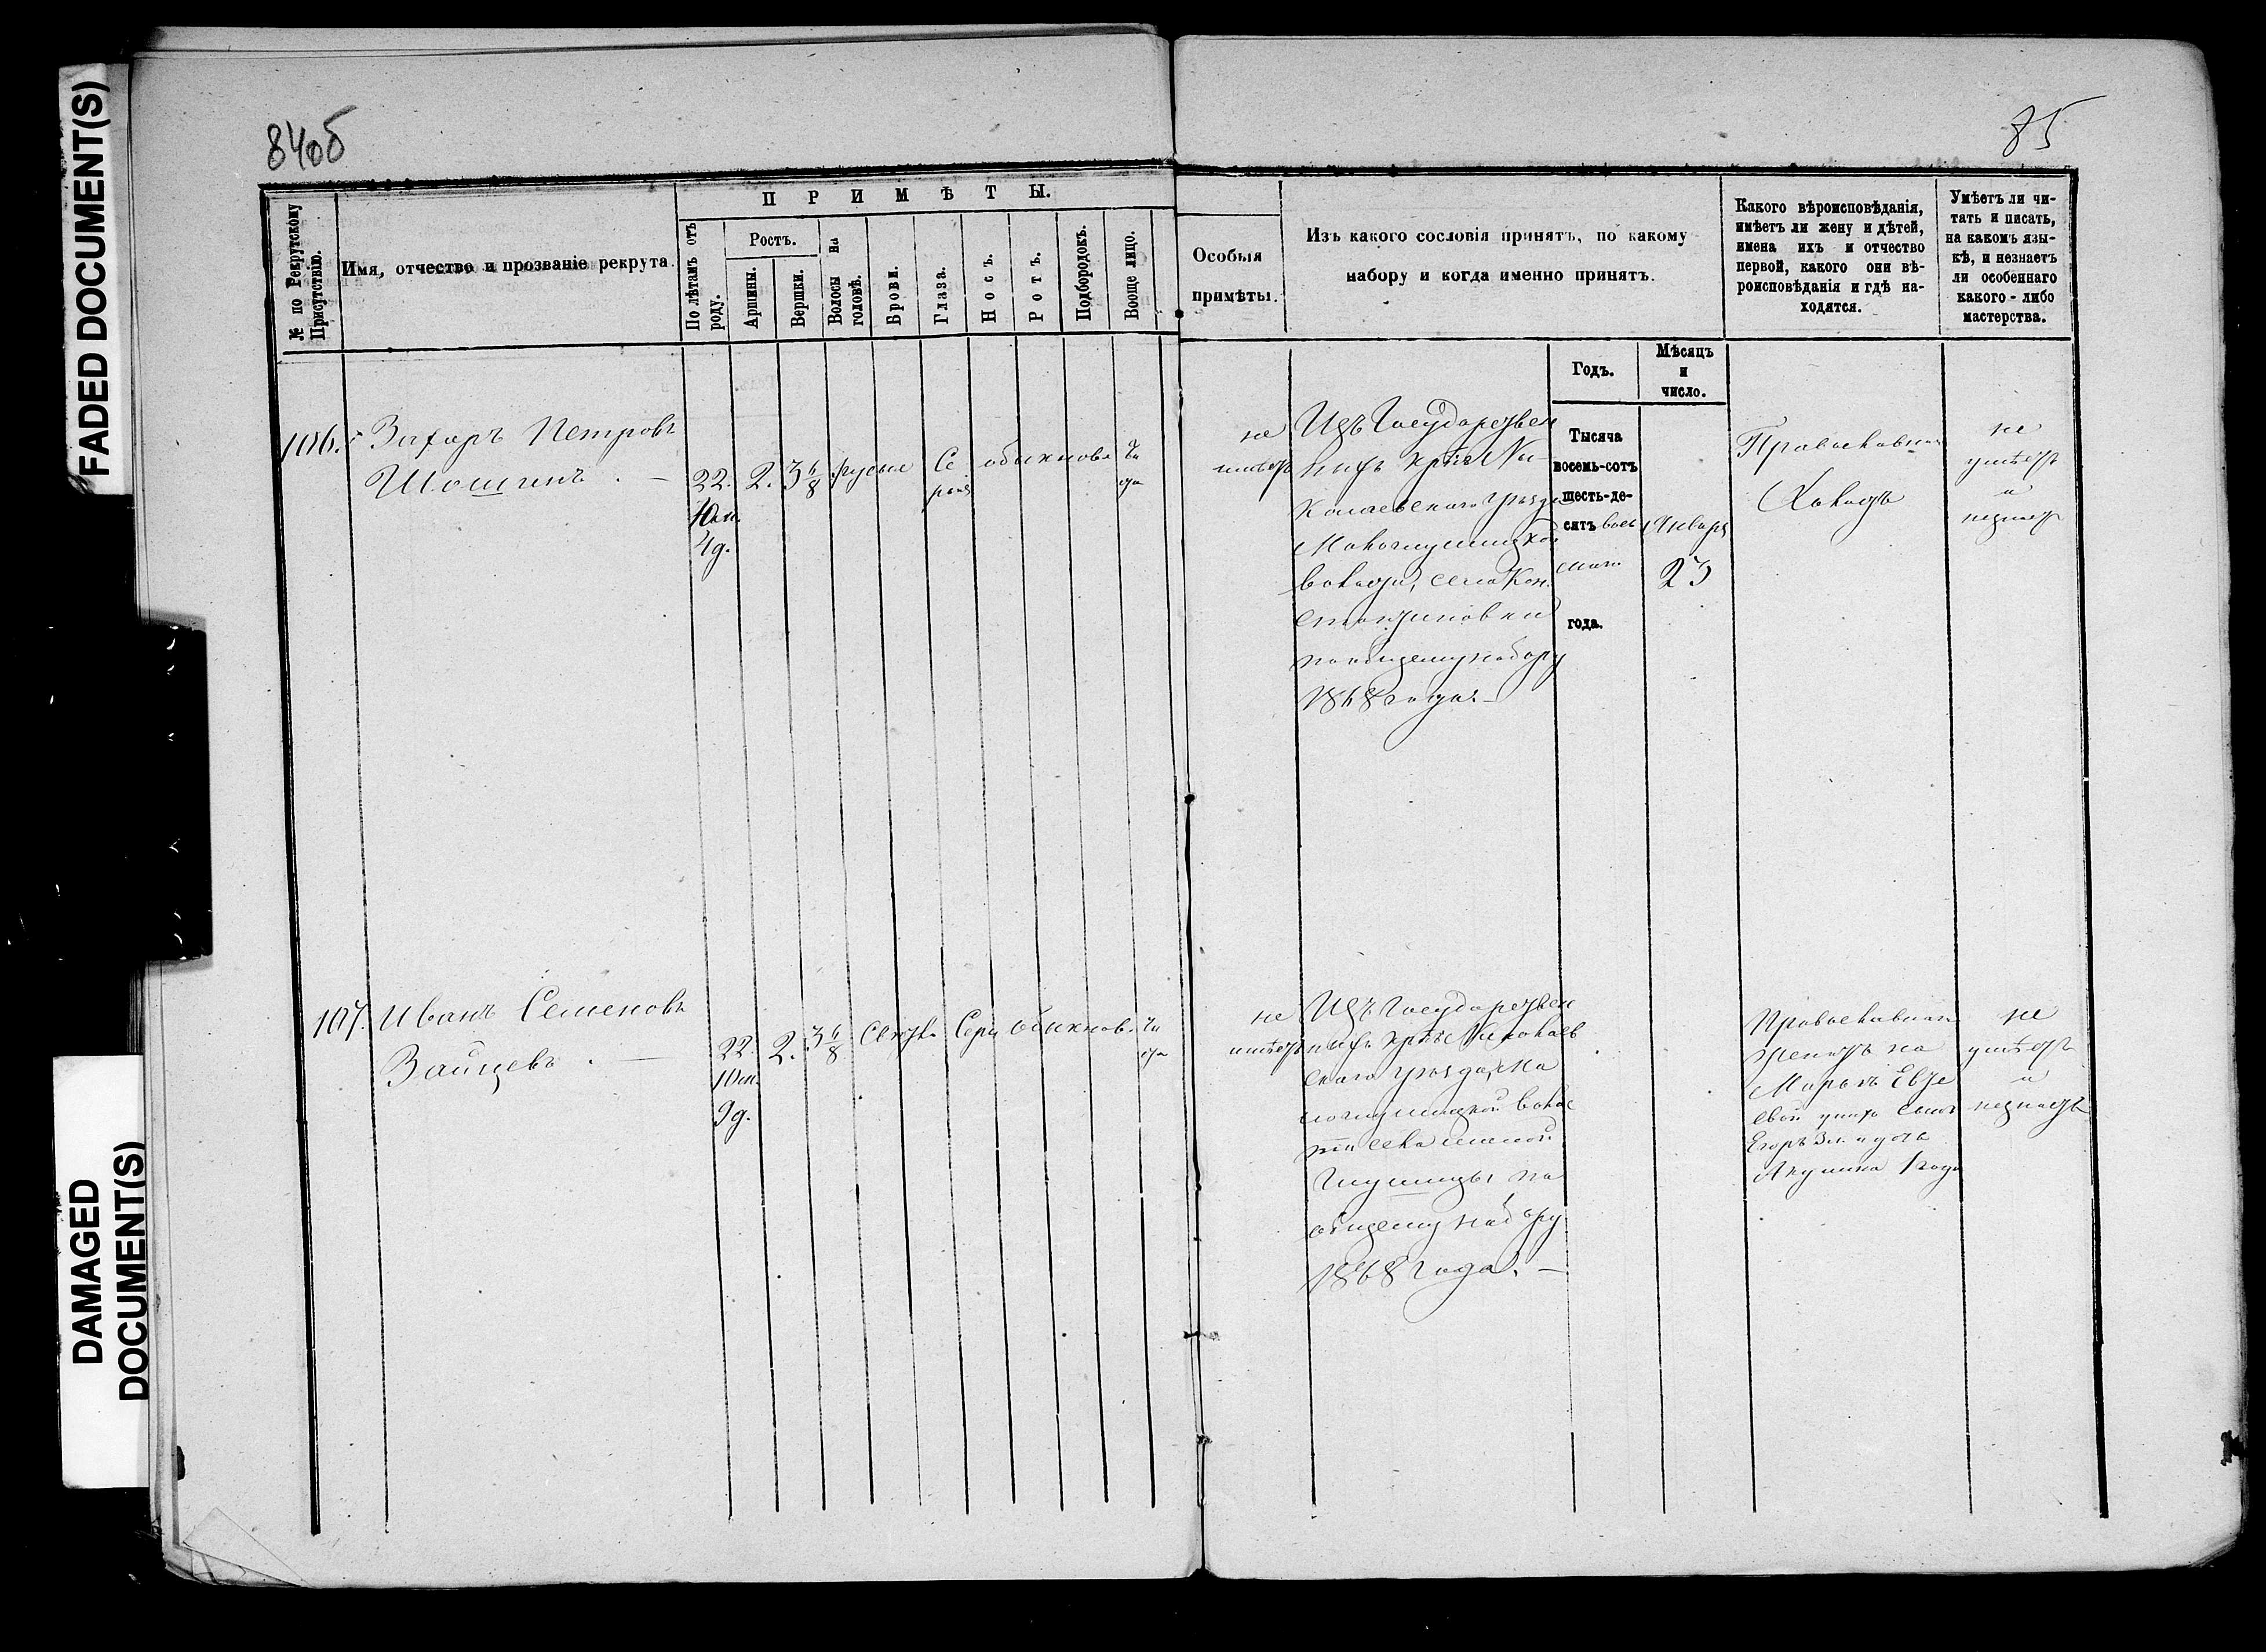 FADED DOCUMENT(S)
DAMAGED DOCUMENT(S)
84об
85
№ по Рекрутскому Присутствію.
Имя, отчество и прозваніе рекрута
ПРИМѢТЫ.
По лѣтамъ отъ роду.
Ростъ.
Аршины.
Вершки.
Волосы на головѣ.
Брови.
Глаза.
Носъ.
Ротъ.
Подбородокъ.
Вообще лицо.
Особыя
примѣты.
Изъ какого сословія принятъ, по какому
набору и когда именно принятъ.
Какого вѣроисповѣданія,
имѣетъ ли жену и дѣтей,
имена ихъ и отчество
первой, какого они вѣ-
роисповѣданія и гдѣ на-
ходятся.
Умѣетъ ли чи-
тать и писать,
на какомъ язы-
кѣ, и незнаетъ
ли особеннаго
какого-либо
мастерства.
Годъ.
Мѣсяцъ
и
число.
106.
Захаръ Петровъ
Шошинъ
22.
10 м.
4 д.
2.
3 6/8
русые
Се
рые
обыкнов.
чи
сто
не
имѣетъ
Изъ Государствен
ныхъ крѣс Ни-
колаевскаго уѣзда
Моко­глушицкой
волости, села Кон
стантиновки
по общему набору
1868 года
Тысяча
восемь-сотъ
шесть-де-
сятъ вось
маго
года.
Января
23
Православнаго
Холостъ
не
умѣетъ
и
незнаетъ
107.
Иванъ Семеновъ
Зайцевъ
22.
10 м.
9 д.
2.
3 6/8
Свѣтл.
Серы
обыкнов.
чи
сто
не
имѣетъ
Изъ Государствен
ныхъ крѣс Николаев
скаго уѣзда, Мо
коглушицкой волос
ти села
Глушицы по
общему набору
1868 года.
Православнаго
женатъ на
Марьѣ
у нихъ сынъ
Егоръ 3 л. и дочь
Акулина 1 года
не
умѣетъ
и
незнаетъ